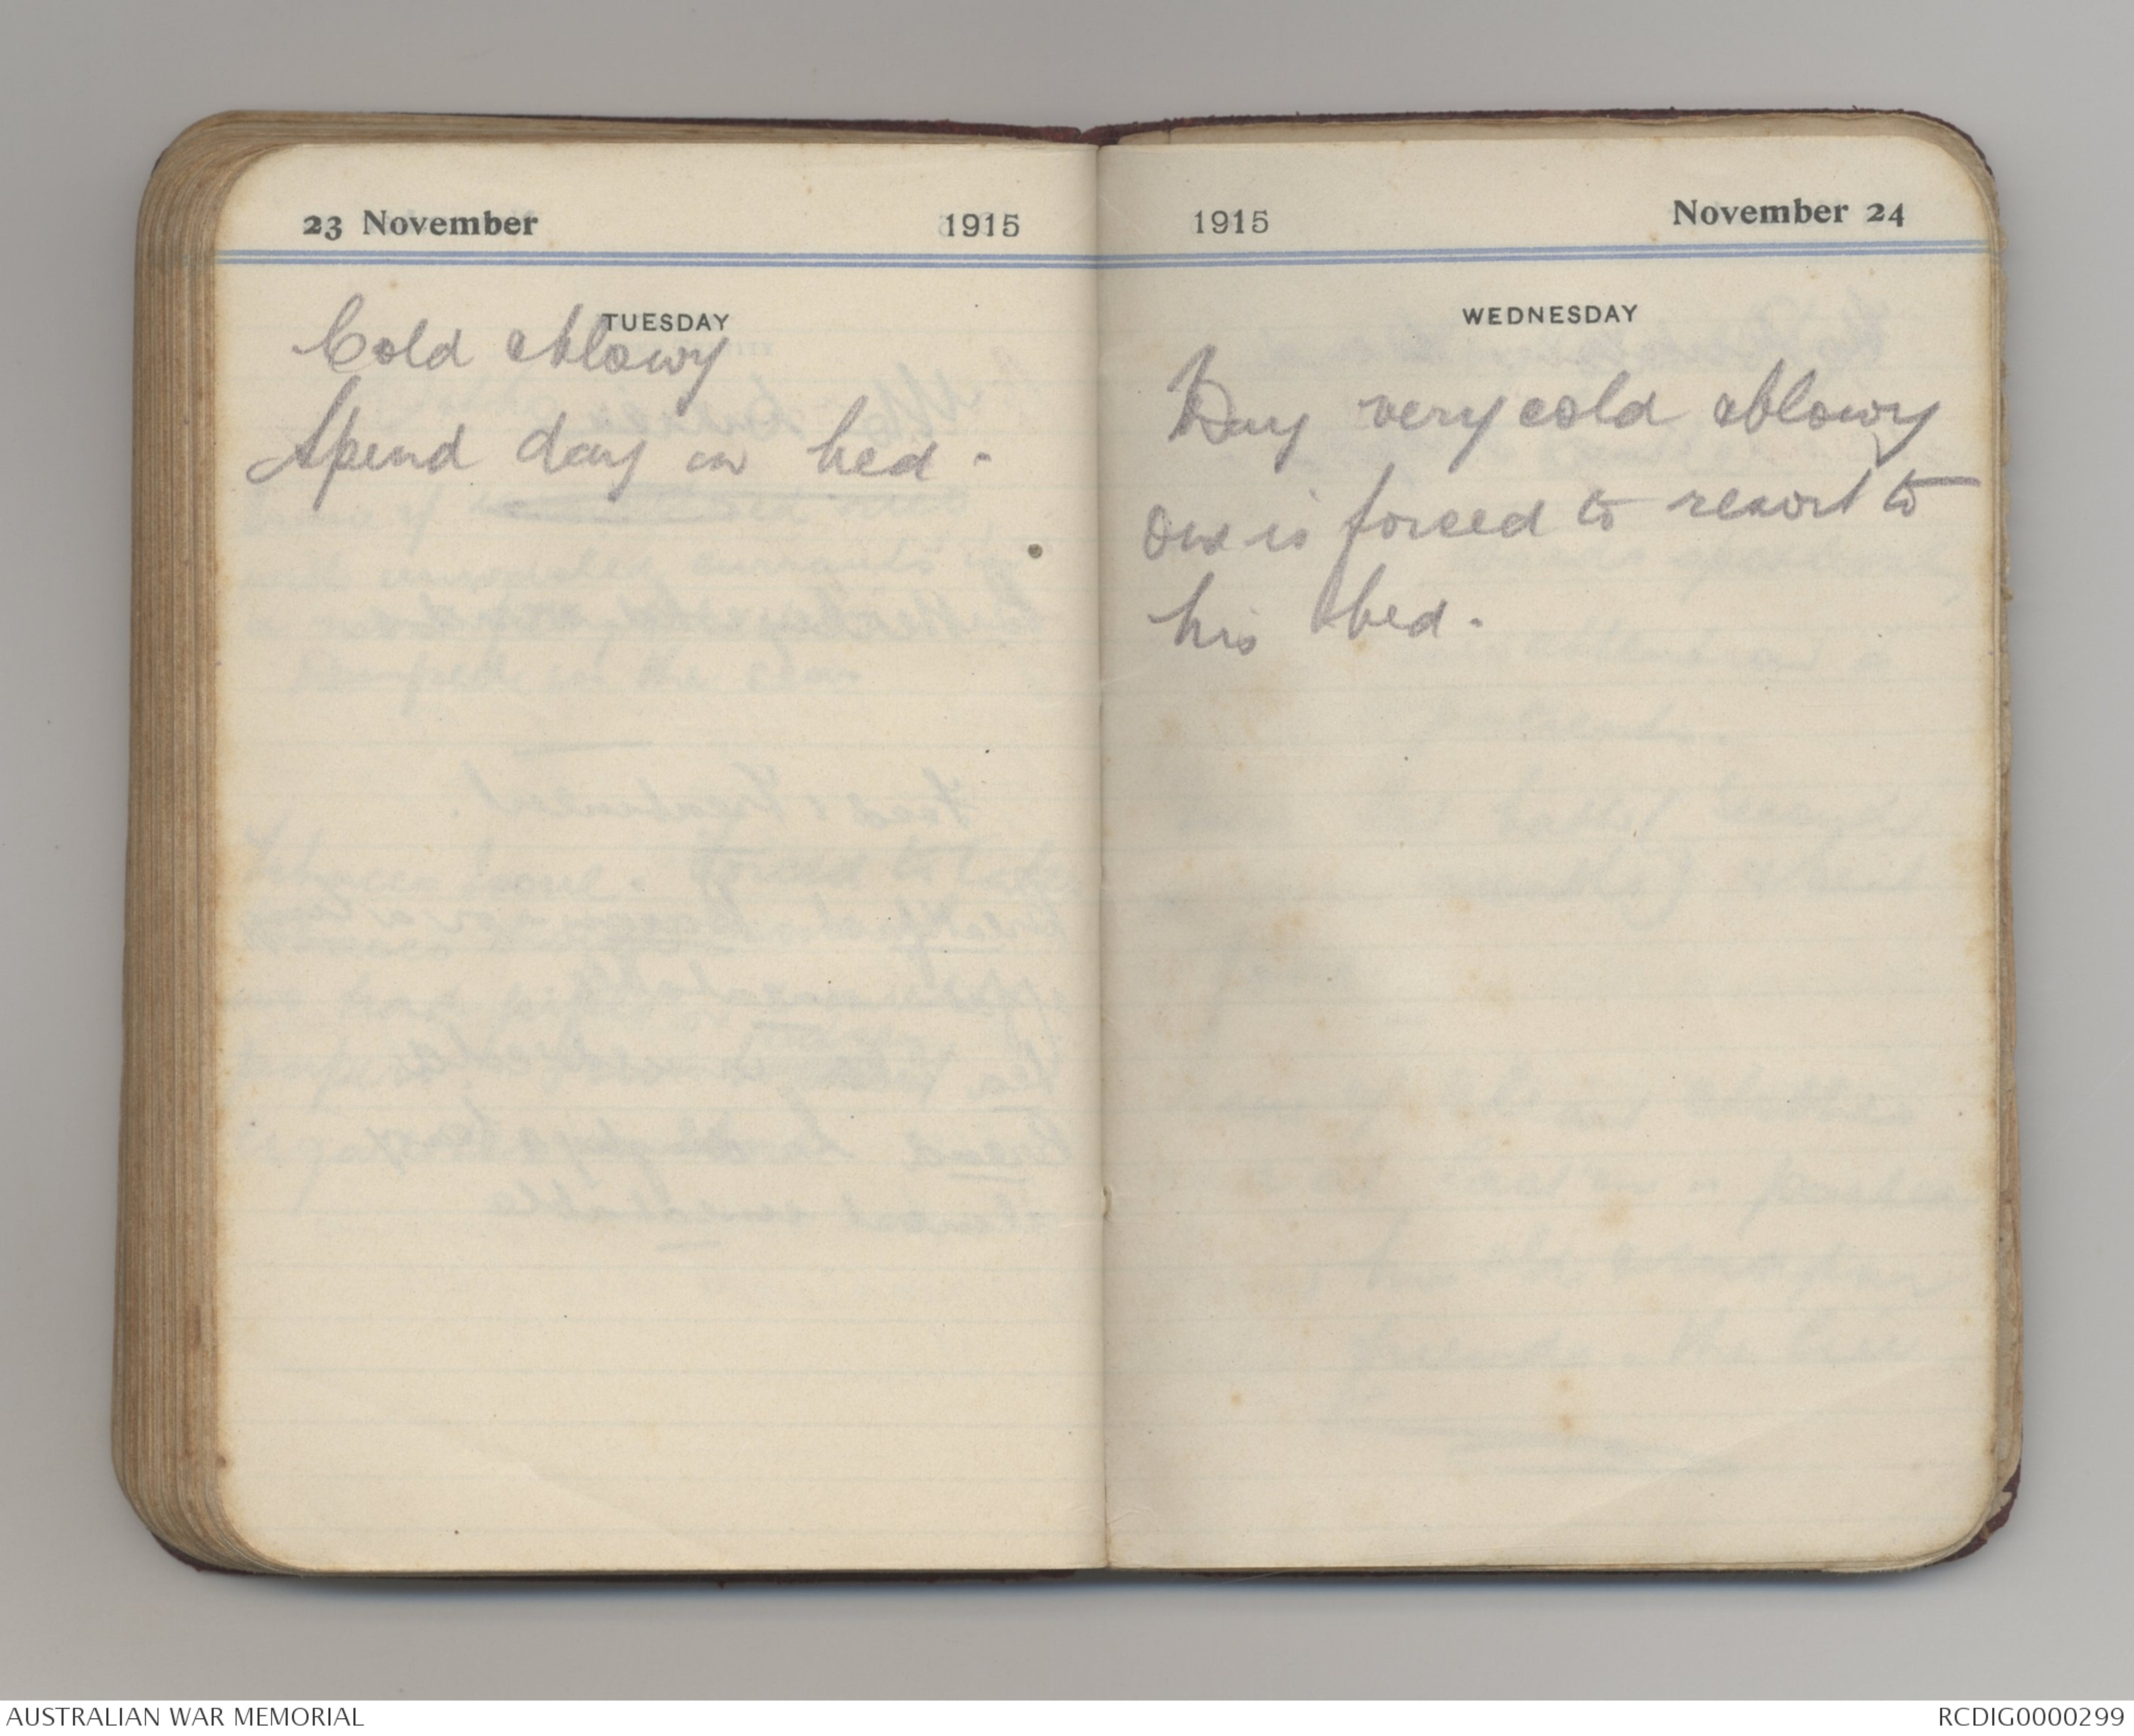 23 November 1915
TUESDAY
Cold & blowy
Spend day in bed.
1915 November 24
WEDNESDAY
Day very cold & blowy
One is forced to resort to
his bed.
AUSTRALIAN WAR MEMORIAL
RCDIG0000299